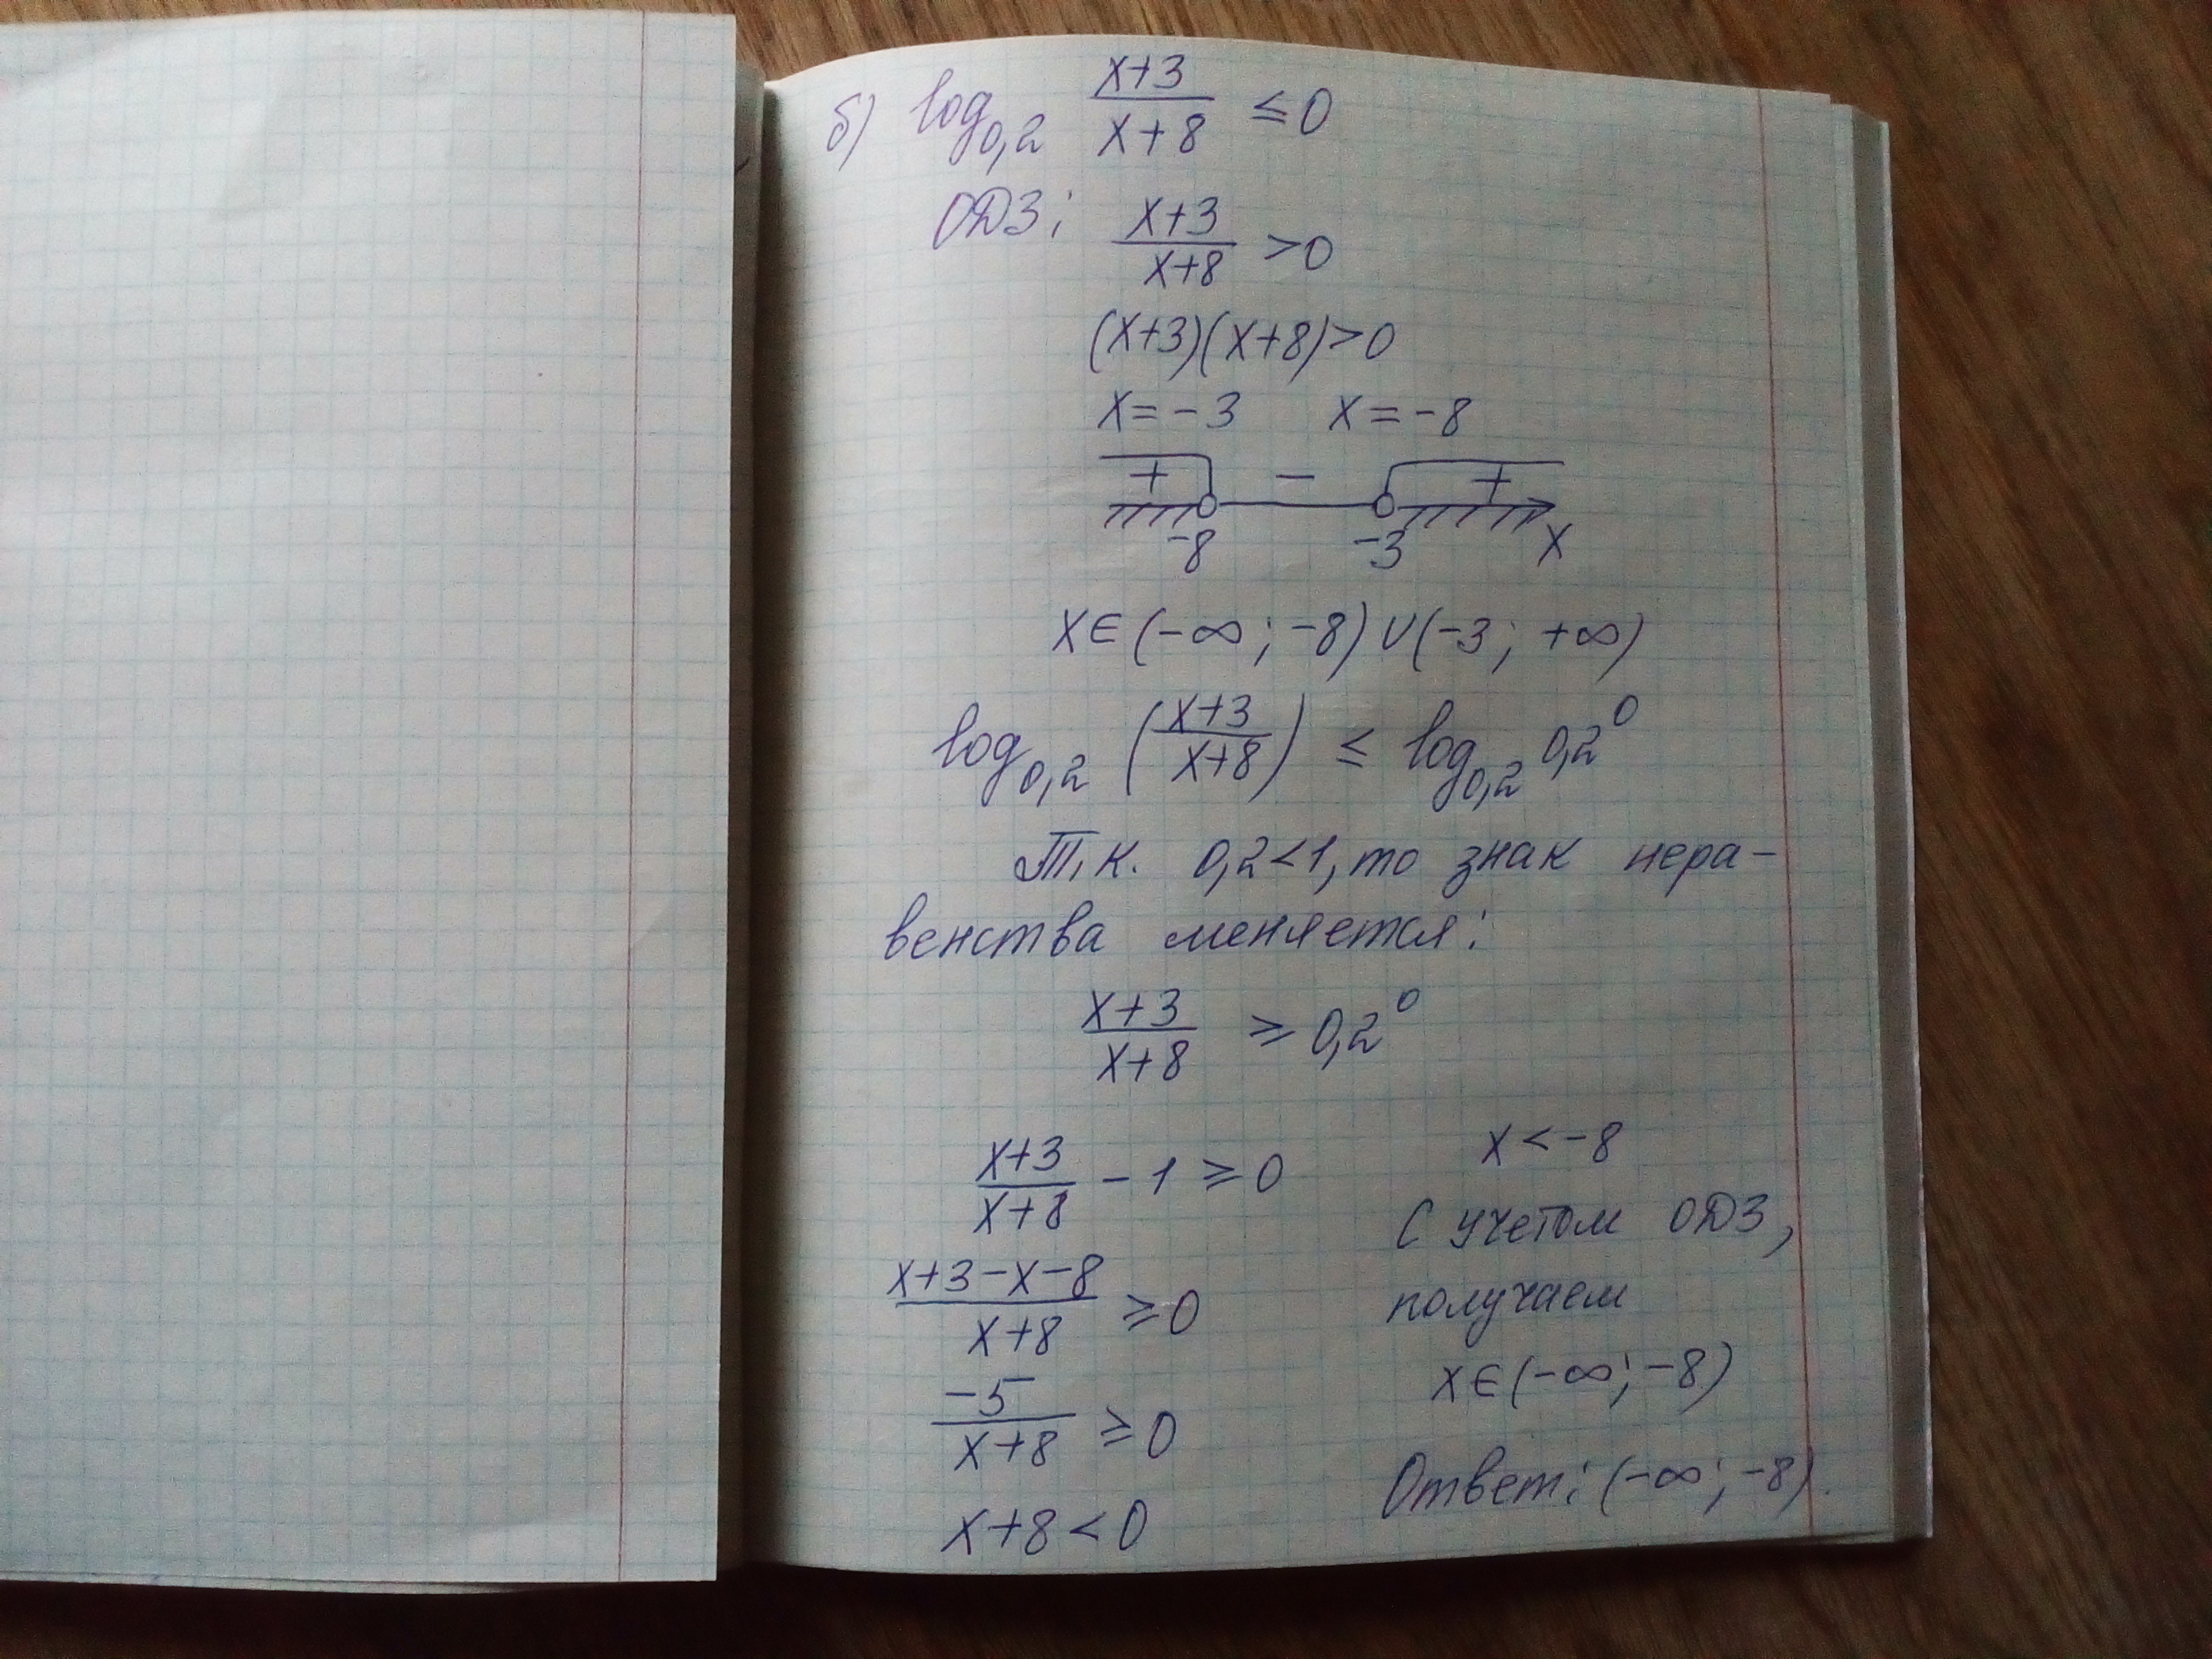 б) log_{0,2} \frac{x+3}{x+8} ≤ 0
ОДЗ: \frac{x+3}{x+8} > 0
(x+3)(x+8)>0
x=-3 x=-8
+ - +
-8 -3 x
x∈(-∞; -8)∪(-3; +∞)
log_{0,2} (\frac{x+3}{x+8}) ≤ log_{0,2} 0,2^0
Т.к. 0,2<1, то знак нера-
венства меняется:
\frac{x+3}{x+8} ≥ 0,2^0
\frac{x+3}{x+8} - 1 ≥ 0
\frac{x+3-x-8}{x+8} ≥ 0
\frac{-5}{x+8} ≥ 0
x+8<0
x<-8
С учетом ОДЗ,
получаем
x∈(-∞; -8)
Ответ: (-∞; -8).